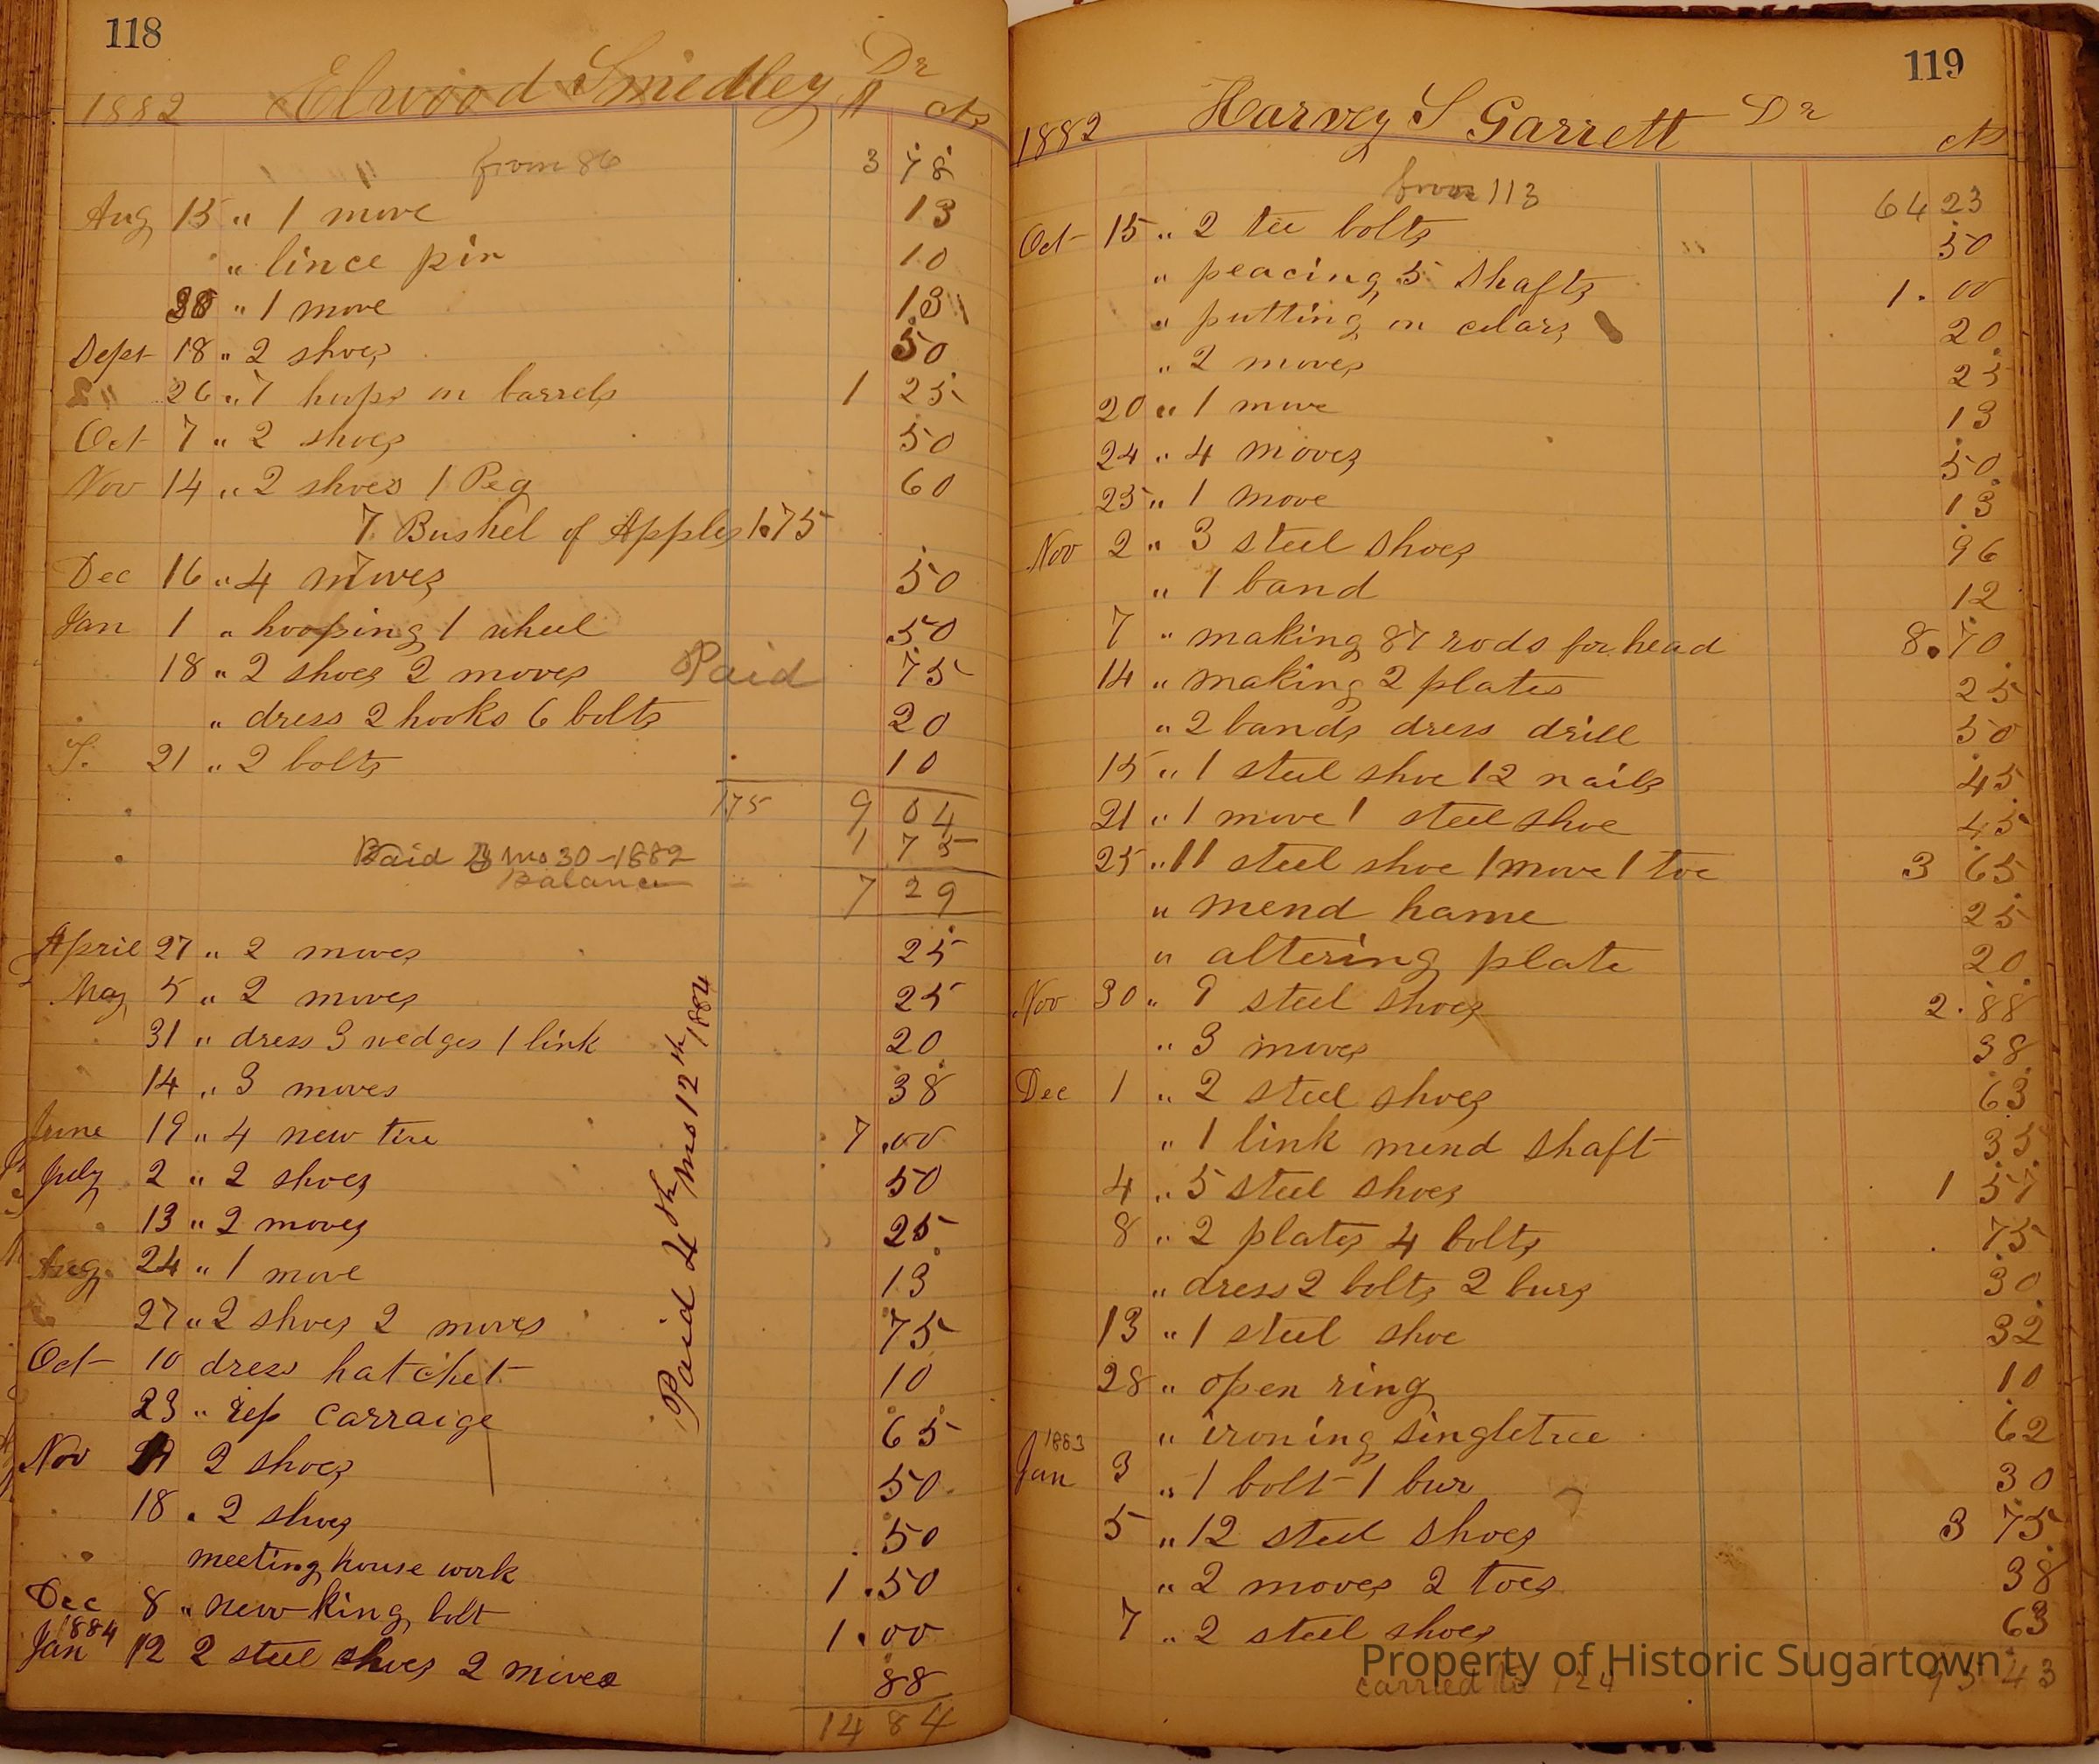 118
Elwood Smedley Dr
1882 $ cts
" " from 86 3 78
Aug 15 " 1 move 13
" lince pin 10
" 1 move 13
Sept 18 " 2 shoes 50
" 26 " 7 hups on barrels 1 25
Oct 7 " 2 shoes 50
Nov 14 " 2 shoes 1 Peg 60
7 Bushel of Apples 1.75
Dec 16 " 4 moves 50
Jan 1 " hooping 1 wheel 50
18 " 2 shoes 2 moves Paid 75
" dress 2 hooks 6 bolts 20
21 " 2 bolts 10
175 9 04
1 75
Paid 3 mo 30-1882
Balance 7 29
April 27 " 2 moves 25
May 5 " 2 moves 25
31 " dress 3 wedges 1 link 20
14 " 3 moves 38
June 19 " 4 new tire 7.00
July 2 " 2 shoes 50
13 " 2 moves 25
Aug 24 " 1 move 13
27 " 2 shoes 2 moves 75
Oct 10 dress hatchet 10
23 " rep carraige 65
Nov 2 shoes 50
18 " 2 shoes 50
meeting house work 1.50
Dec 8 " new King bolt 1.00
1884
Jan 12 2 steel shoes 2 moves 88
14 84
Paid 4th mo 12th 1884
119
Harvey S Garrett Dr
1882 cts
from 113 64 23
Oct 15 " 2 tee bolts 50
" peacing 5 shafts 1.00
" putting on colars 20
" 2 moves 25
20 " 1 move 13
24 " 4 moves 50
25 " 1 move 13
Nov 2 " 3 steel shoes 96
" 1 band 12
7 " making 87 rods for head 8.70
14 " making 2 plates 25
" 2 bands dress drill 50
15 " 1 steel shoe 12 nails 45
21 " 1 move 1 steel shoe 45
25 " 11 steel shoe 1 move 1 toe 3 65
" mend hame 25
" altering plate 20
Nov 30 " 9 steel shoes 2.88
" 3 moves 38
Dec 1 " 2 steel shoes 63
" 1 link mend shaft 35
4 " 5 steel shoes 1 57
8 " 2 plates 4 bolts 75
" dress 2 bolts 2 burs 30
13 " 1 steel shoe 32
28 " open ring 10
" ironing singletree 62
1883
Jan 3 " 1 bolt 1 bur 30
5 " 12 steel shoes 3 75
" 2 moves 2 toes 38
7 " 2 steel shoes 63
Property of Historic Sugartown
carried to 124 95 43